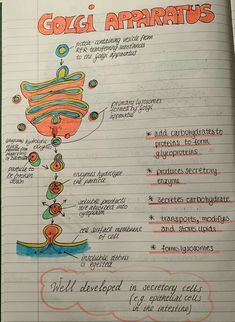 GOLGI APPARATUS
protein-containing vesicle from
RER transferring substances
to the golgi apparatus
primary lysosomes
formed by golgi
apparatus
hydrolytic
enzymes
particle to
be broken
down
enzymes hydrolyse
the particle
soluble products
are absorbed into
cytoplasm
cell surface membrane
of cell
insoluble debris
is egested
* add carbohydrates to
proteins to form
glycoproteins
* produces secretory
enzyme
* secretes carbohydrate
* transports, modifys
and stores lipids
* forms lysosomes
Well developed in secretory cells
(e.g. epithelial cells
in the intestine)